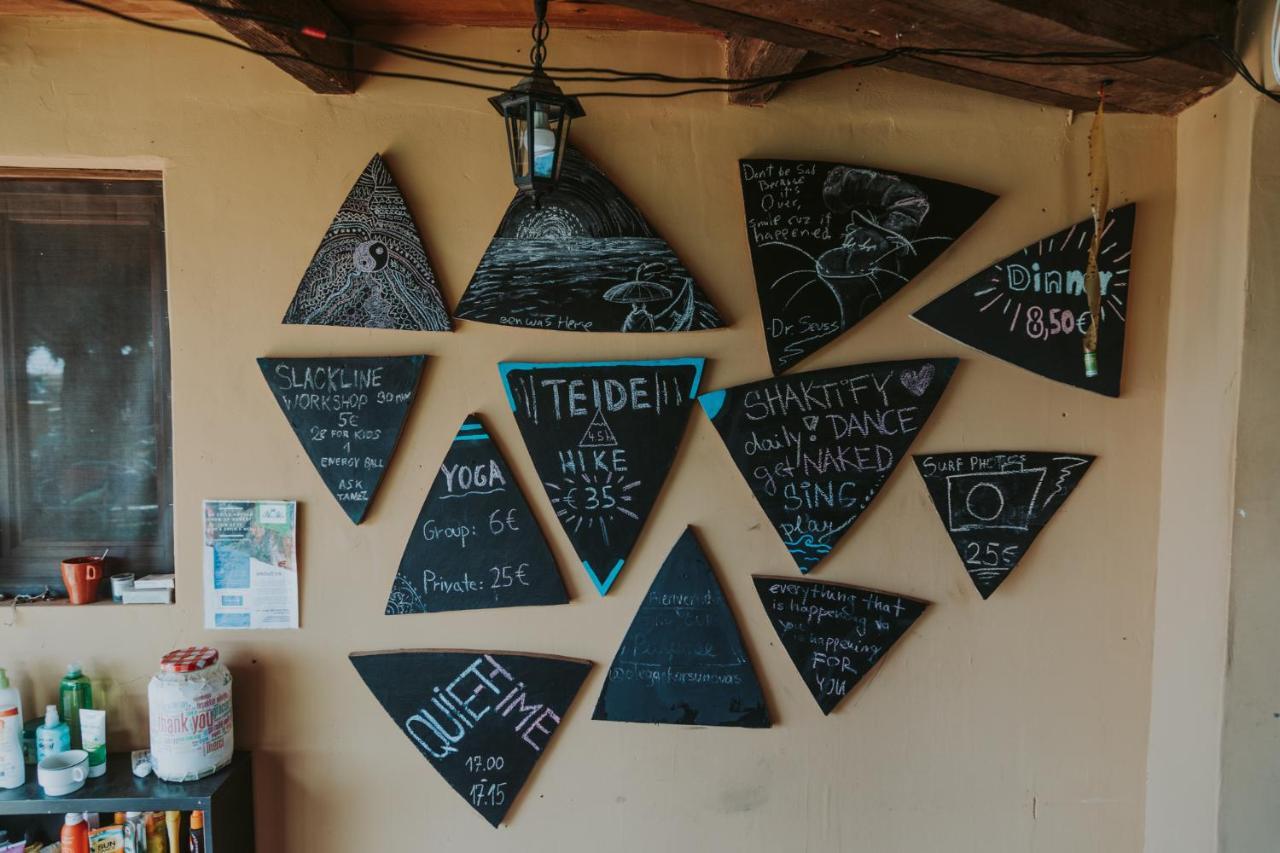 zen was Here
Don't be Sad
Because
it's
Over,
smile cuz it
happened
-Dr. Seuss
Dinner
8,50€
SLACKLINE
WORKSHOP 90 MIN
5€
FOR KIDS
1
ENERGY BALL
ASK
TEIDE
4.5h
HIKE
€35
SHAKTiFY
daily! DANCE
get NAKED
SiNG
play
SURF PHOTOS
25€
YOGA
Group: 6€
Private: 25€
everything that
is happening
you is happening
FOR
YOU
QUIET TiME
17.00
-
17.15
thank you
merci
SUN